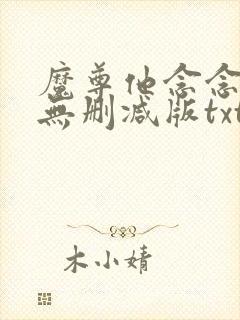 魔尊他念念
無删减版txt
木小婧